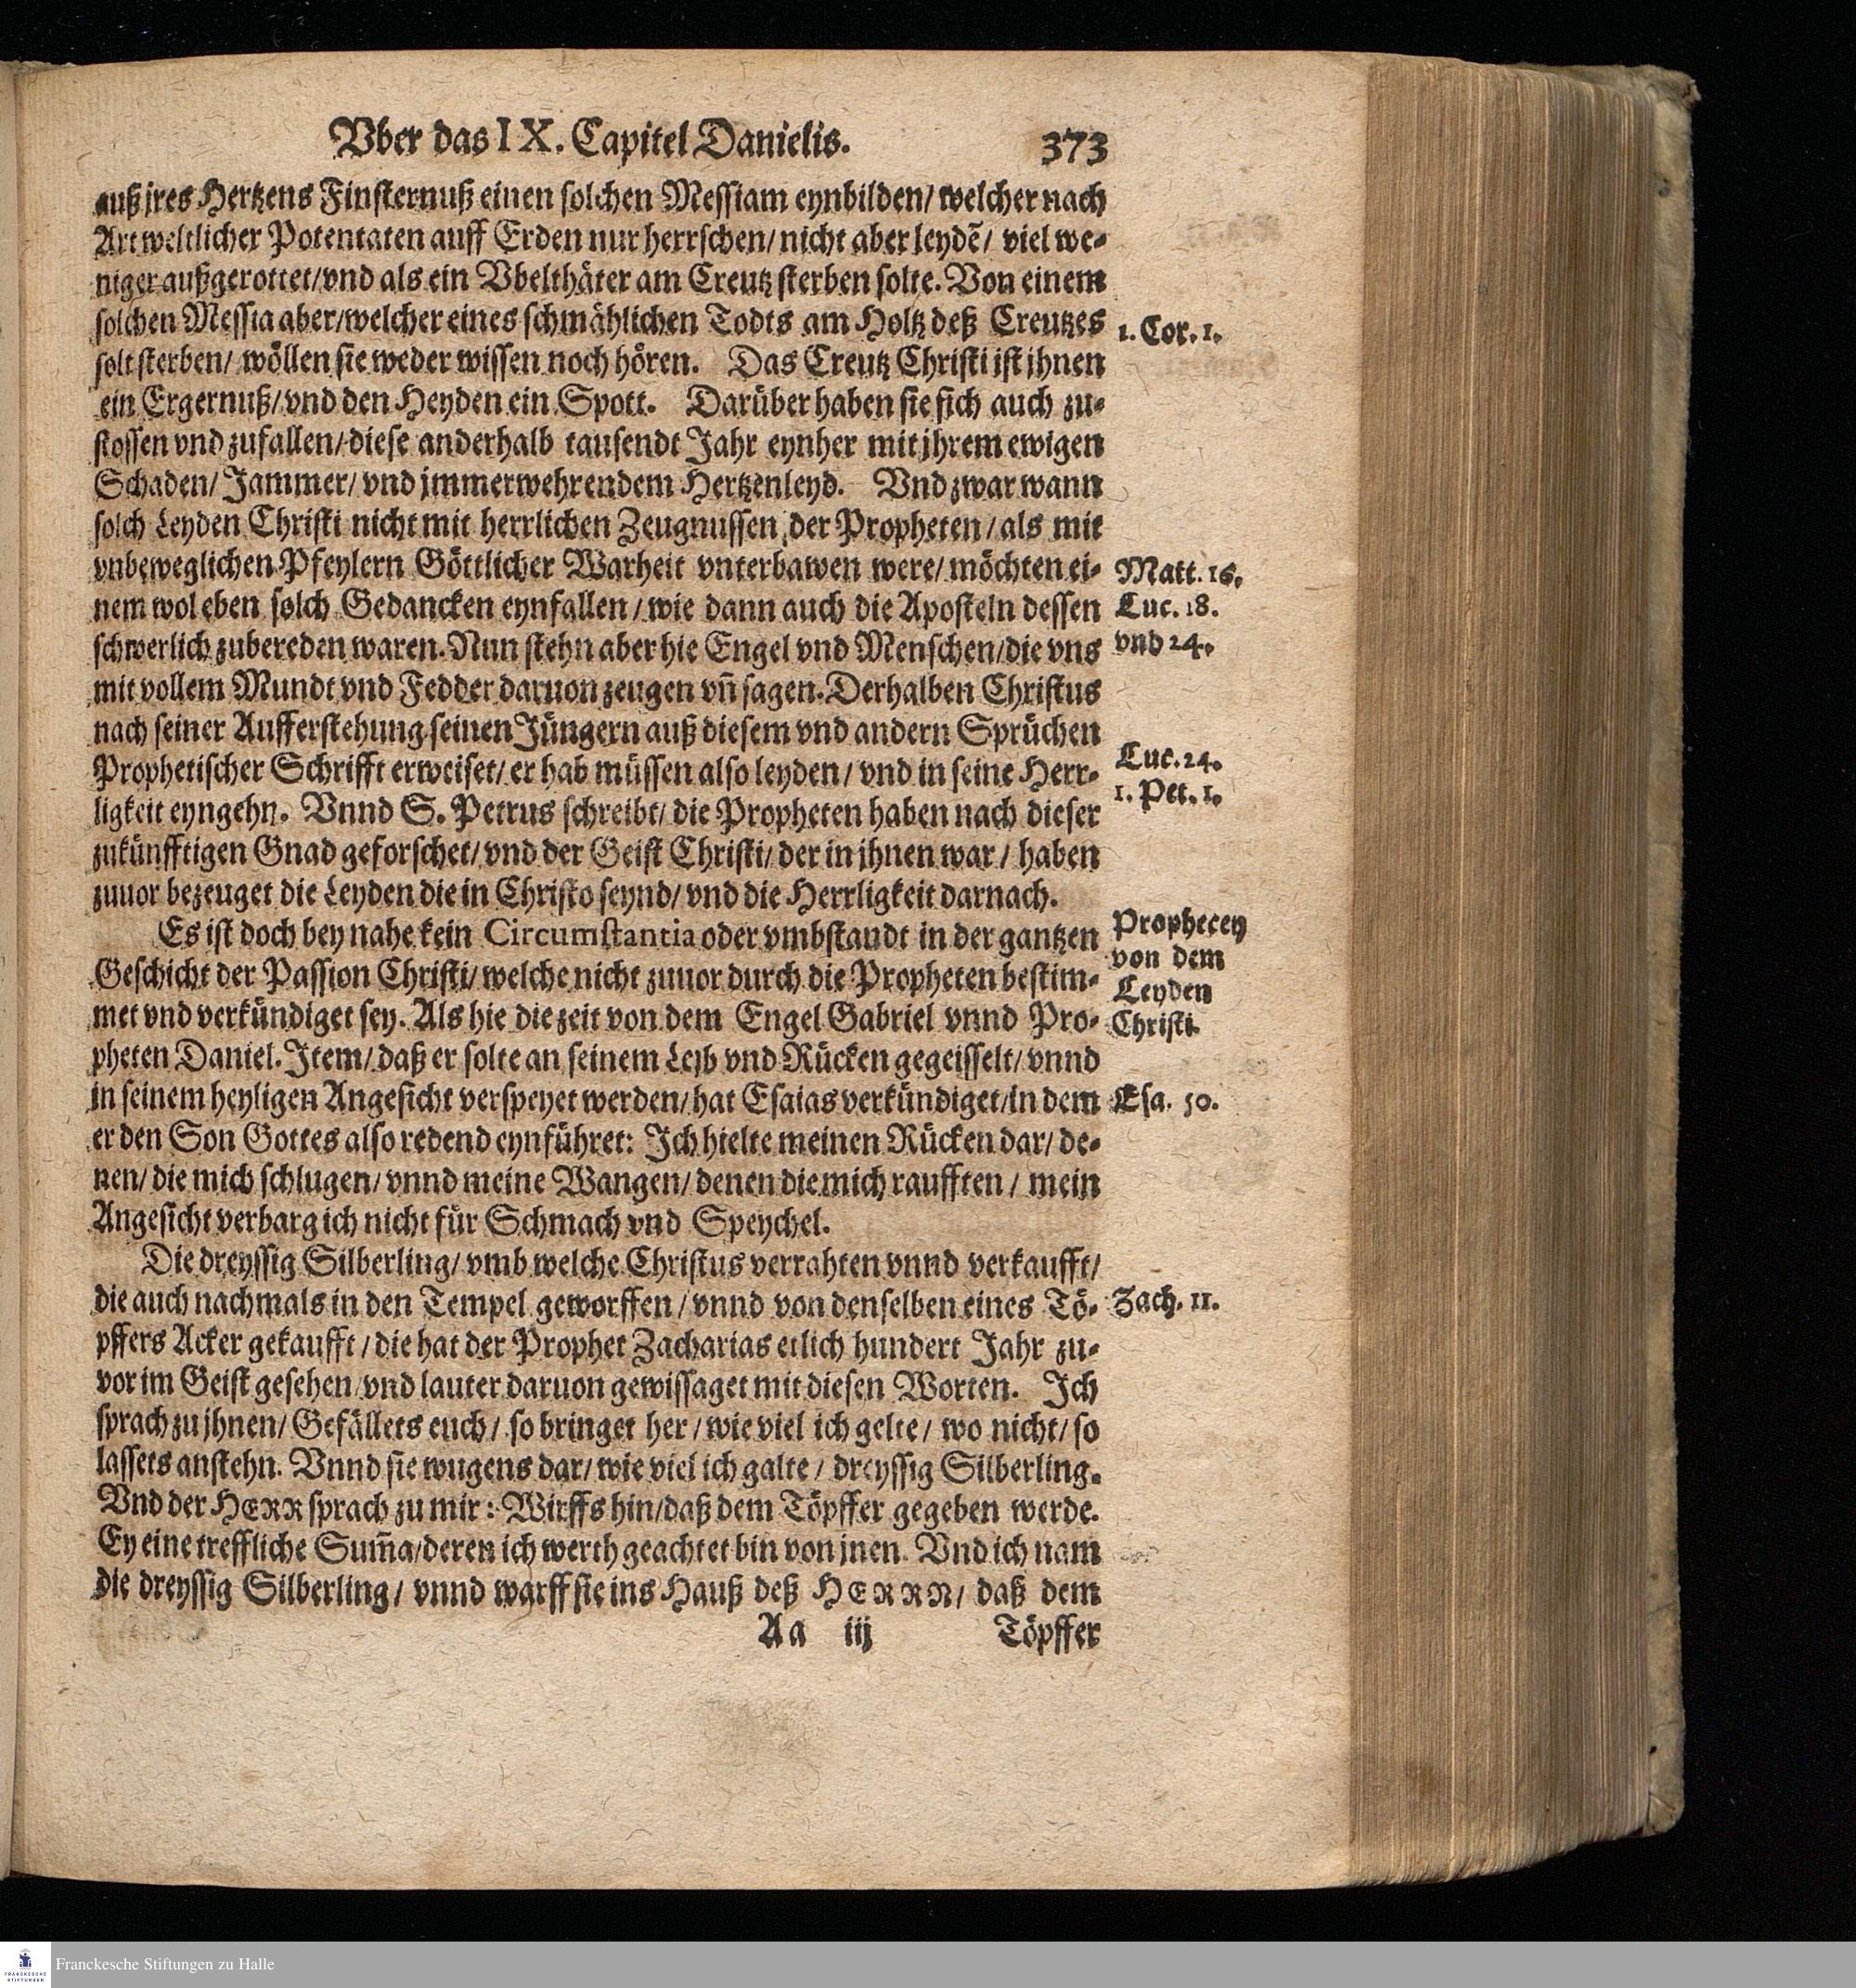 Vber das IX. Capitel Danielis. 373
auß jres Hertzens Finsternuß einen solchen Messiam eynbilden/ welcher nach
Art weltlicher Potentaten auff Erden nur herrschen/ nicht aber leydẽ/ viel we-
niger außgerottet/ vnd als ein Vbelthäter am Creutz sterben solte. Von einem
solchen Messia aber/ welcher eines schmählichen Todts am Holtz deß Creutzes
solt sterben/ wöllen sie weder wissen noch hören. Das Creutz Christi ist jhnen
1. Cor. 1.
ein Ergernuß/ vnd den Heyden ein Spott. Darüber haben sie sich auch zu-
stossen vnd zufallen/ diese anderhalb tausendt Jahr eynher mit jhrem ewigen
Schaden/ Jammer/ vnd jmmerwehrendem Hertzenleyd. Vnd zwar wann
solch Leyden Christi nicht mit herrlichen Zeugnussen der Propheten/ als mit
vnbeweglichen Pfeylern Göttlicher Warheit vnterbawen were/ möchten ei-
nem wol eben solch Gedancken eynfallen/ wie dann auch die Aposteln dessen
schwerlich zubereden waren. Nun stehn aber hie Engel vnd Menschen/ die vns
Matt. 16.
Luc. 18.
vnd 24.
mit vollem Mundt vnd Fedder daruon zeugen vñ sagen. Derhalben Christus
nach seiner Aufferstehung seinen Jüngern auß diesem vnd andern Sprüchen
Prophetischer Schrifft erweiset/ er hab müssen also leyden/ vnd in seine Herr-
ligkeit eyngehn. Vnnd S. Petrus schreibt/ die Propheten haben nach dieser
Luc. 24.
1. Pet. 1.
zukünfftigen Gnad geforschet/ vnd der Geist Christi/ der in jhnen war/ haben
zuuor bezeuget die Leyden die in Christo seynd/ vnd die Herrligkeit darnach.
Es ist doch bey nahe kein Circumstantia oder vmbstandt in der gantzen
Geschicht der Passion Christi/ welche nicht zuuor durch die Propheten bestim-
met vnd verkündiget sey. Als hie die zeit von dem Engel Gabriel vnnd Pro-
Prophecey
von dem
Leyden
Christi.
pheten Daniel. Item/ daß er solte an seinem Leyb vnd Rücken gegeisselt/ vnnd
in seinem heyligen Angesicht verspeyet werden/ hat Esaias verkündiget/ in dem
Esa. 50.
er den Son Gottes also redend eynführet: Ich hielte meinen Rücken dar/ de-
nen/ die mich schlugen/ vnnd meine Wangen/ denen die mich raufften/ mein
Angesicht verbarg ich nicht für Schmach vnd Speychel.
Die dreyssig Silberling/ vmb welche Christus verrahten vnnd verkaufft/
die auch nachmals in den Tempel geworffen/ vnnd von denselben eines Tö-
Zach. 11.
pffers Acker gekaufft/ die hat der Prophet Zacharias etlich hundert Jahr zu-
vor im Geist gesehen vnd lauter daruon gewissaget mit diesen Worten. Ich
sprach zu jhnen/ Gefällets euch/ so bringet her/ wie viel ich gelte/ wo nicht/ so
lassets anstehn. Vnnd sie wugens dar/ wie viel ich galte/ dreyssig Silberling.
Vnd der HERR sprach zu mir: Wirffs hin/ daß dem Töpffer gegeben werde.
Ey eine treffliche Sum̃a/ deren ich werth geachtet bin von jnen. Vnd ich nam
die dreyssig Silberling/ vnnd warff sie ins Hauß deß HERRN/ daß dem
Aa iij Töpffer
FRANCKESCHE
STIFTUNGEN
Franckesche Stiftungen zu Halle